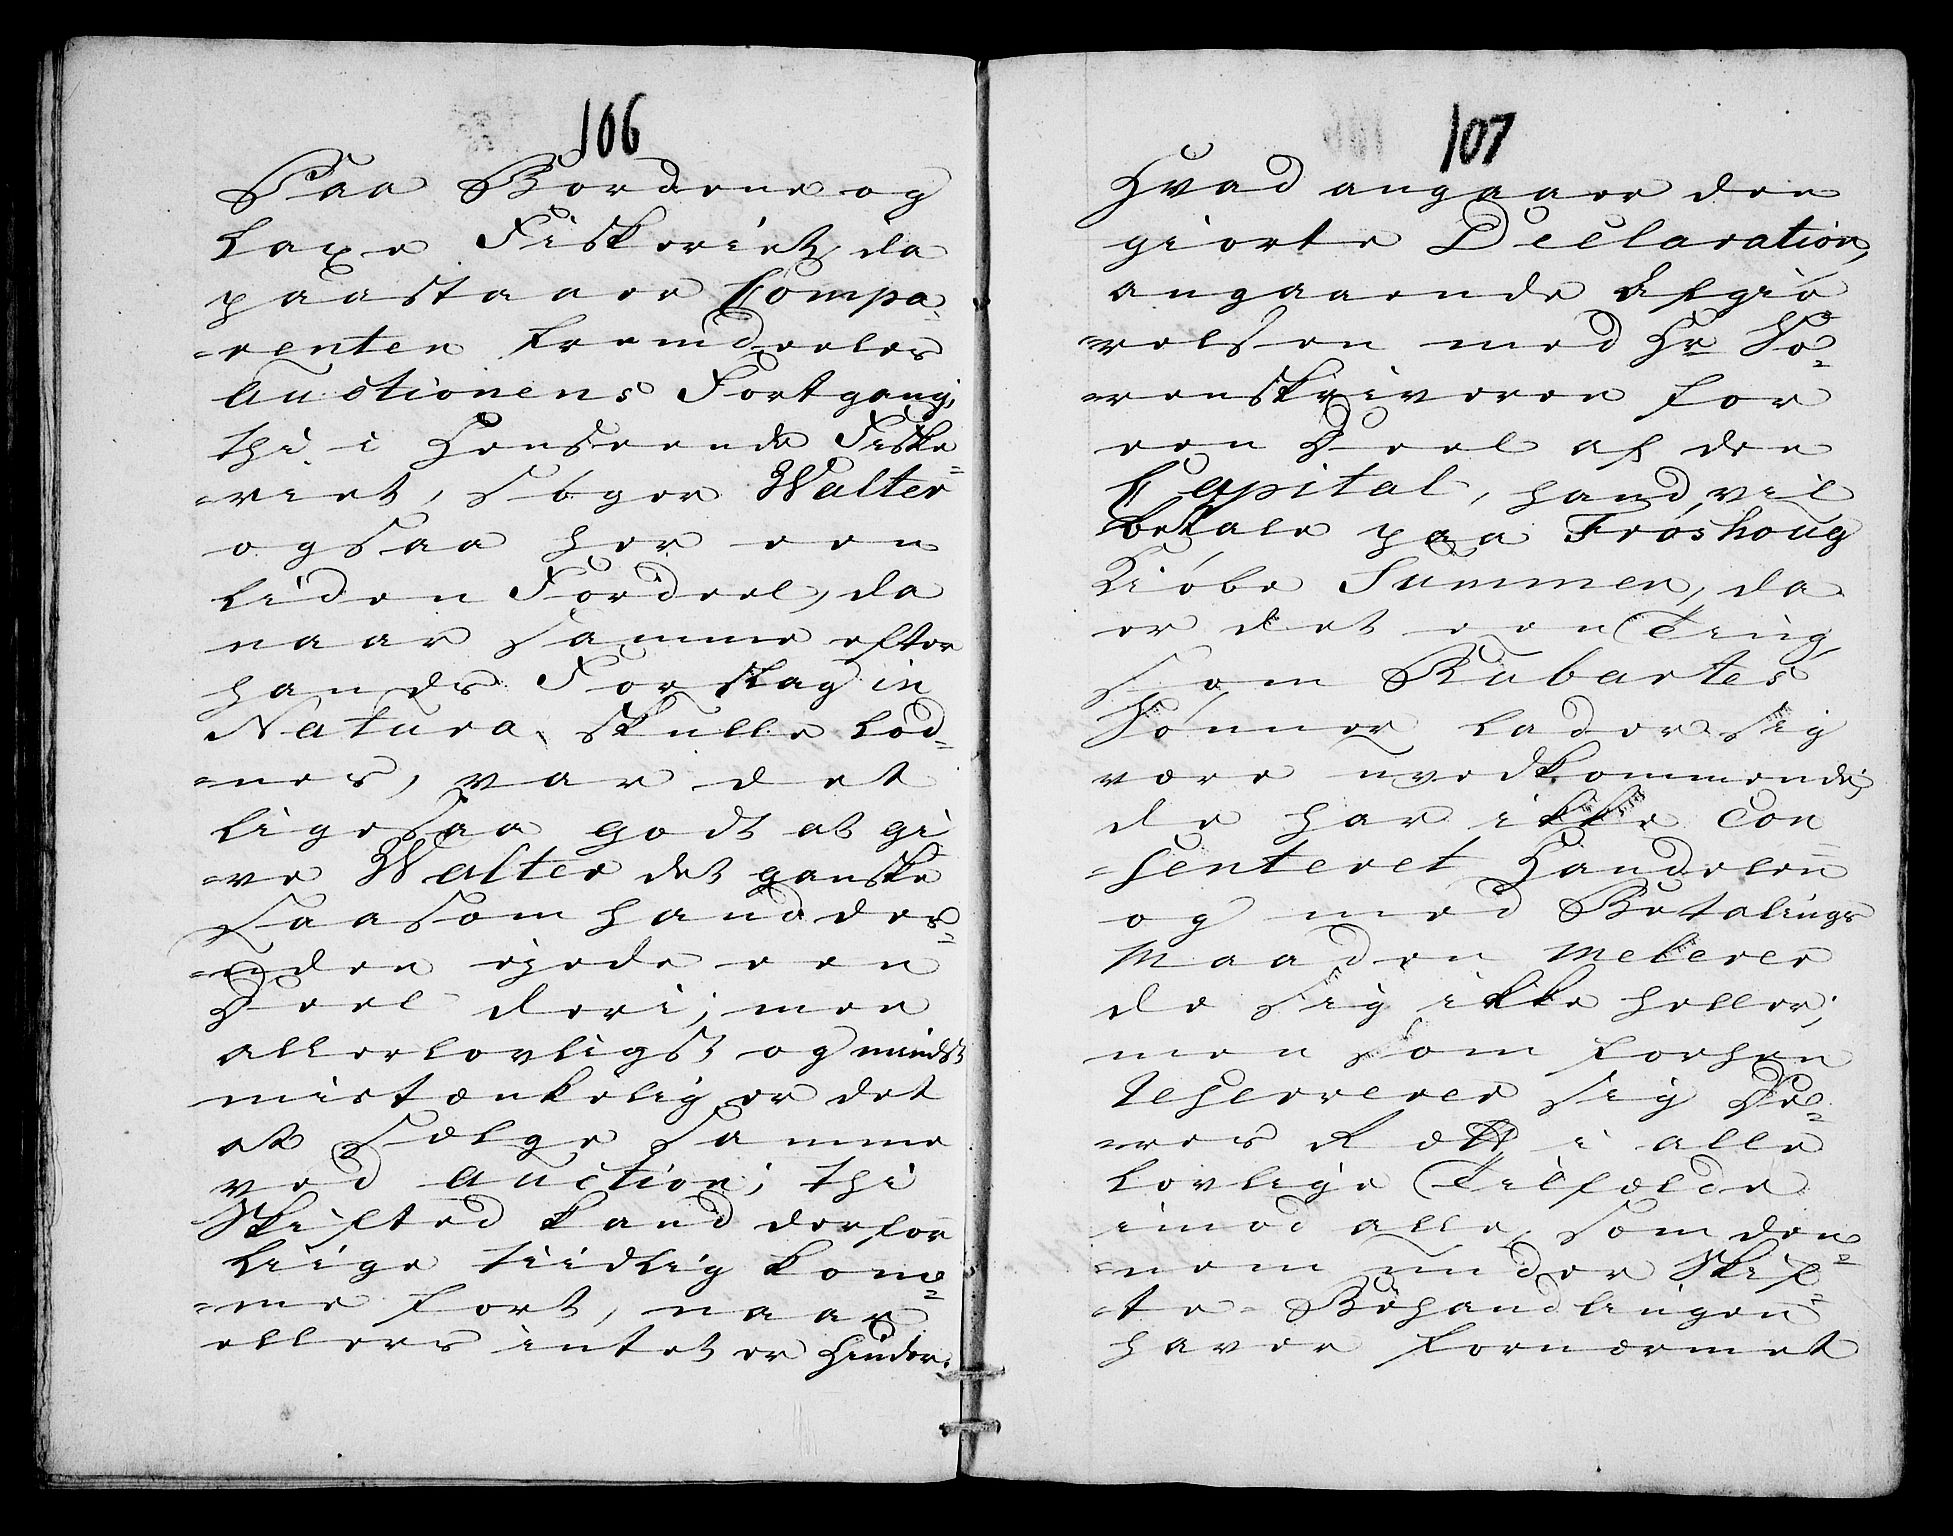 106
Paa Bordene og
Laxe Fiskeriet, da
paastaaer Compa¬
=renten fremdeeles
Auctionens Fortgang,
thi i Henseende Fiske
=riet, søger Walter
ogsaa her een
Liden Fordeel, da
naar samme efter
hands Forslag in
Natura, skulle Lod¬
=nes, var det
Ligesaa godt at gi
=ve Walter det ganske
saasom hand des¬
=uden ejede een
Deel deri; men
allerlovligst og mindst
mistænkelig er det
at sælge samme
ved Auction; thi
Skifted kand derfor
Liige tiidlig kom¬
=me fort, naar
ellers intet er Hinder.
107
Hvad angaaer den
giorte Declaration,
angaaende Afgiø
=relsen med Hr. So¬
=renskriveren for
een Deel af den
Capital, hand vil
betale paa Frøshoug
Kiøbe Summen, da
er det een Ting,
som Kubartes
Sønner lader sig
være uvedkommende,
de har ikke Con
=senteret Handelen
og med Betalings
Maaden melerer
de sig ikke heller;
men som forhen
reserverer sig De¬
=res Ræt i alle
Lovlige Tilfælde
imod alle, som den¬
=nem under Skif¬
=te-Behandlingen
haver fornærmet